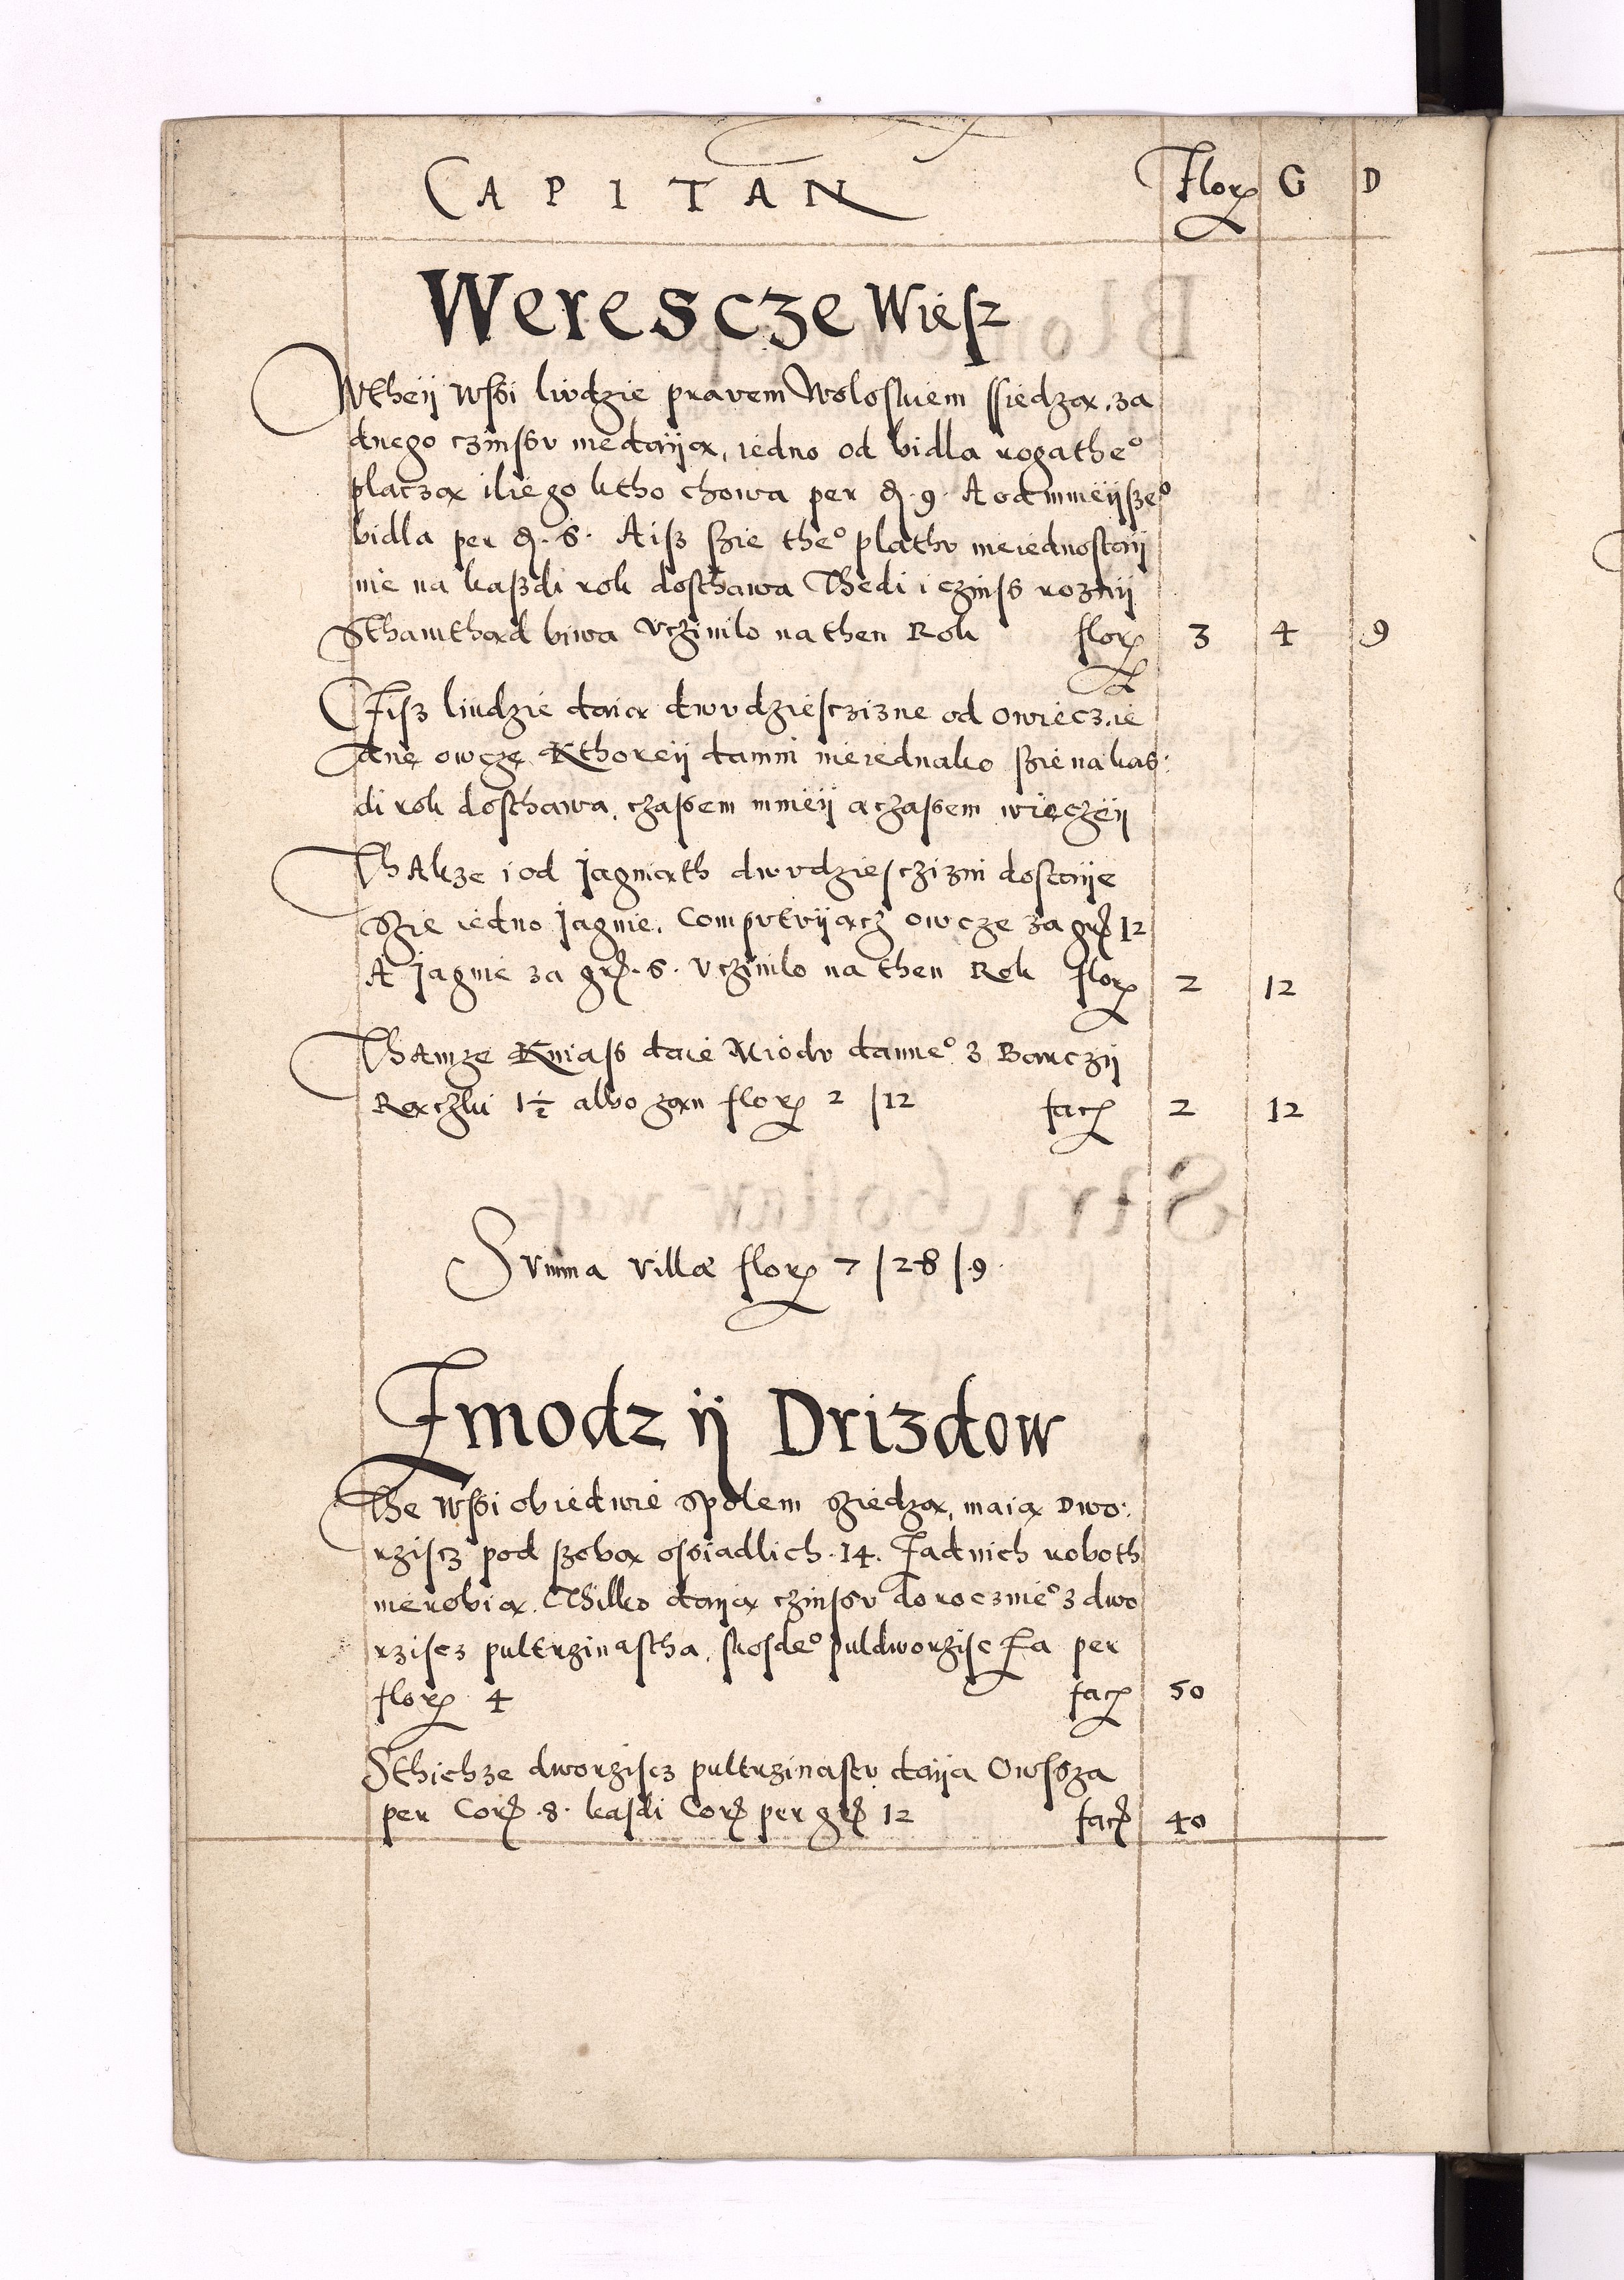 CAPITAN Flor G D
Werescze Wiesz
Wtheÿ wsßi liudzie prawem Woloskiem ssiedzą, za
dnego czinsßu niedaÿą, iedno od bidla rogathe°
placzą iliego ktho chowa per d. 9. A od mnieÿsze°
bidla per d. 6. A isz szie the° plathu nieiednostaÿ
nie na kaszdi rok dosthawa Thedi i czinsß roznÿ
Sthamthąd biwa Uczinilo na then Rok flor 3 4 9
Cisz liudzie daią dwudziesczizne od owiecz, ie
dnę owczę Kthoreÿ danini nieiednako szie na kas:
di rok dosthawa, czaßem mnieÿ a czaßem więczeÿ
Thakze i od Jagniąth dwudziesczizni dostaÿe
szie iedno Jagnie. Computuÿącz owcze za gr 12
A Jagnie za gr. 6. Uczinilo na then Rok flor 2 12
Thamze Kniaß daie Miodu danne° z Barczÿ
Rączki 1½ albo zan flor 2 | 12 fac 2 12
Summa villæ flor 7 | 28 | 9
Zmodz ÿ Drizdow
The Wsßi obiedwie spolem sziedzą, maią dwo:
rziscz pod szobą osßiadlich. 14. Zadnich roboth
nierobią. Thilko daÿą czinsßu dorocznie° z dwo
rziscz pultrzinastha, skosde° puldworziscza per
flor 4 fac 50
Sthichze dworziscz pultrzinastu daÿa Owsßza
per Cor. 8. kasdi Cor per gr 12 fac 40